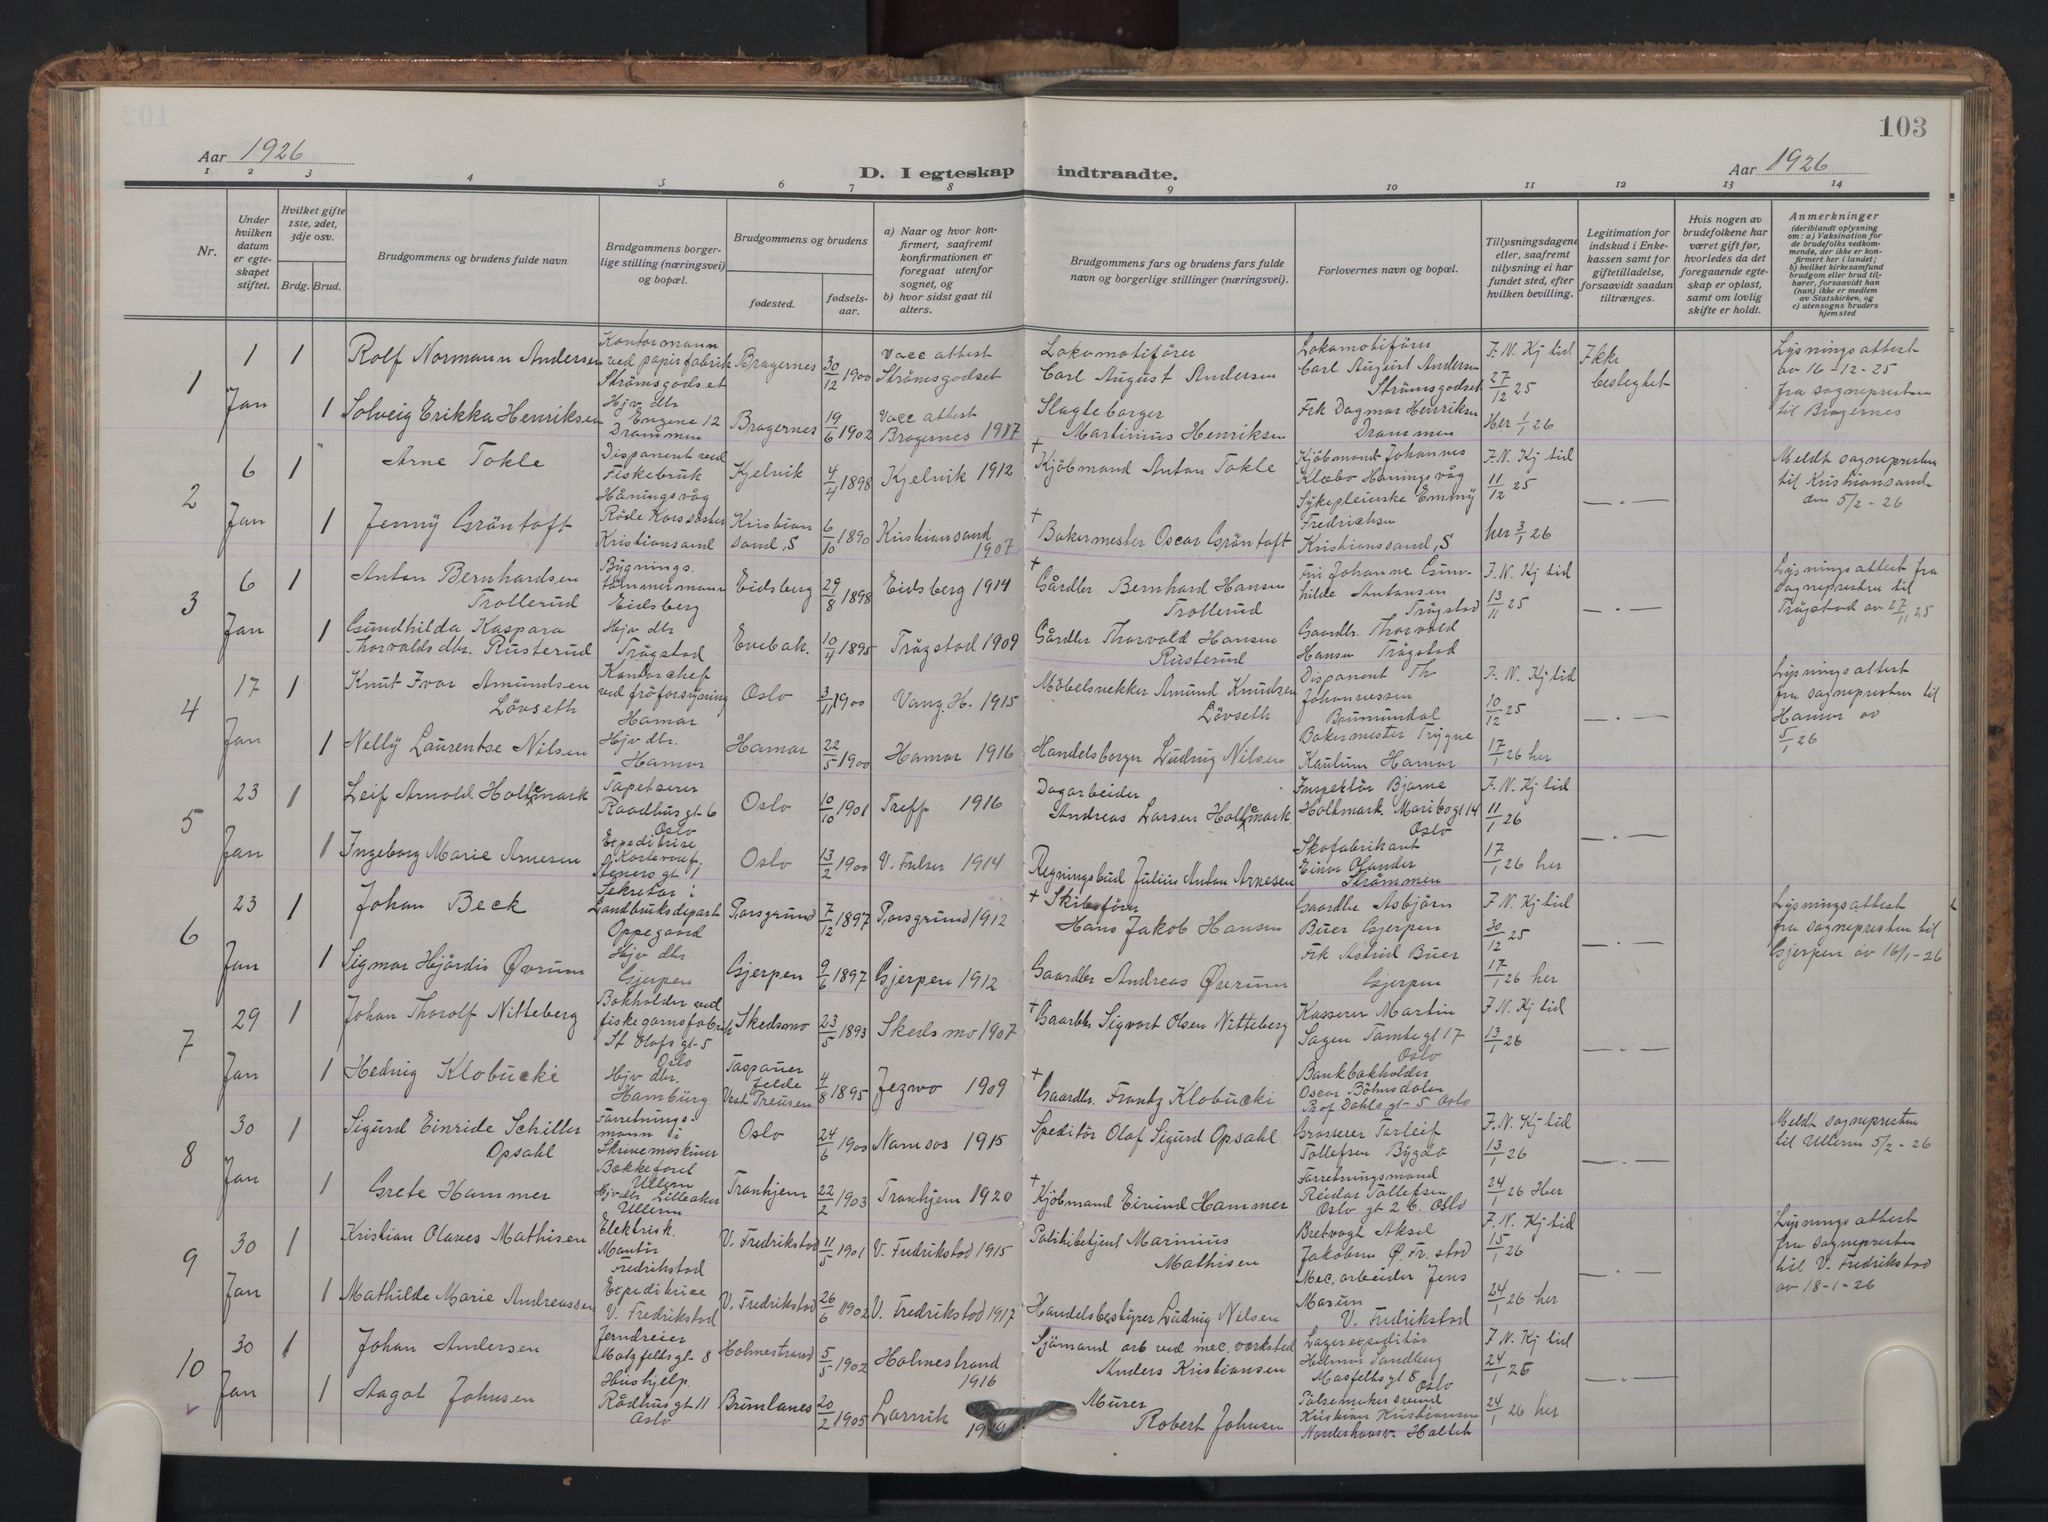 103
Aar 1926
D. I egteskap indtraadte.
Aar 1926
1 2 3 4 5 6 7 8 9 10 11 12 13 14
Nr.
Under hvilken datum er egteskapet stiftet.
Hvilket gifte 1ste, 2det, 3dje osv.
Brdg. Brud.
Brudgommens og brudens fulde navn
Brudgommens borgerlige stilling (næringsvei) og bopæl.
Brudgommens og brudens
fødested.
fødselsaar.
a) Naar og hvor konfirmert, saafremt konfirmationen er foregaat utenfor sognet, og
b) hvor sidst gaat til alters.
Brudgommens fars og brudens fars fulde navn og borgerlige stillinger (næringsvei).
Forlovernes navn og bopæl.
Tillysningsdagene eller, saafremt tillysning ei har fundet sted, efter hvilken bevilling.
Legitimation for indskud i Enkekassen samt for giftetilladelse, forsaavidt saadan tiltrænges.
Hvis nogen av brudefolkene har været gift før, hvorledes da det foregaaende egteskap er opløst, samt om lovlig skifte er holdt.
Anmerkninger (deriblandt oplysning om: a) Vaksination for de brudefolks vedkommende, der ikke er konfirmert her i landet; b) hvilket kirkesamfund brudgom eller brud tilhører, forsaavidt han (hun) ikke er medlem av Statskirken, og c) utensogns bruders hjemsted
1
1 Jan
1 Rolf Normann Andersen
Kontormann ved papirfabrik Strömsgodset
Bragernes 30/12 1900
Vacc attest Strömsgodset
Lokomotiförer Carl August Andersen
Lokomotiförer Carl August Andersen Strömsgodset
F. N. Kj tid 27/12 25
Ikke besleghet
Lysningsattest av 16-12-25 fra sognepresten til Bragernes
1 Solveig Erikka Henriksen
Hjv. dtr Engene 12 Drammen
Bragernes 19/6 1902
Vacc attest Bragernes 1917
Slagteborger Martinius Henriksen
Frk Dagmar Henriksen Drammen
Her 1/1 26
2
6 Jan
1 Arne Tokle
Disponent ved Fiskebruk Håningsvåg
Kjelvik 4/4 1898
Kjelvik 1912
+ Kjöbmand Anton Tokle
Kjöbmand Johannes Klæbo Håningsvåg
F. N. Kj tid 11/12 25
Meldt sognepresten til Kristiansand den 5/2-26
1 Jenny Gröntoft
Röde Korssöster Kristiansand
Kristiansand, S 6/10 1890
Kristiansand 1907
+ Bakermester Oscar Gröntoft
Sykepleierske Emmy Fredrichsen Kristianssand, S
her 3/1 26
3
6 Jan
1 Anton Bernhardsen Trollerud
Bygningstömmermann Eidsberg
Eidsberg 29/8 1898
Eidsberg 1914
+ Gårdbr Bernhard Hansen Trollerud
Fru Johanne Gunhilde Antonsen Trögstad
F. N. Kj tid 13/11 25
Lysningsattest fra sognepresten til Trögstad av 27/11 25
1 Gundhilda Kaspara Thorvaldsdtr. Rusterud
Hjv dtr Trögstad
Evebak. 10/4 1895
Trögstad 1909
Gårdbr Thorvald Hansen Rusterud
Gaardbr. Thorvald Hansen Trögstad
4
17 Jan
1 Knut Ivar Amundsen Lövseth
Kontorchef ved fröforsyning Hamar
Oslo 3/11 1900
Vang. H. 1915
Möbelsnekker Amund Knudsen Lövseth
Disponent Th Johannessen Brumundal
F. N. Kj tid 10/12 25
Lysningsattest fra sognepresten til Hamar av 5/1 26
1 Nelly Laurentse Nilsen
Hjv dtr. Hamar
Hamar 22/5 1900
Hamar 1916
Handelsborger Ludvig Nilsen
Bakermester Trygve Kaulum Hamar
17/1 26 her
5
23 Jan
1 Leif Arnold Holtemark
Tapetserer Raadhusgt 6 Oslo
Oslo 10/10 1901
Treff 1916
Dagarbeider Andreas Larsen Holtemark.
Inspektör Bjarne Holtmark Maribogt 14 Oslo
F. N. Kj tid 11/1 26
1 Ingeborg Marie Arnesen
Expeditrise Stenersgt 1
Oslo 13/2 1900
V. Fulser 1914
Regningsbud Julius Anton Arnesen
Skofabrikant Einar Olander Strömmen
17/1 26 her
6
23 Jan
1 Johan Beck
Sekretær i Landbruksdepart Oppegaard
Porsgrund 7/12 1897
Porsgrund 1912
+ Skibsförer Hans Jakob Hansen
Gaardbr Asbjörn Buer Gjerpen
F N. Kj tid 30/12 25
Lysningsattest fra sognepresten til Gjerpen av 16/1-26
1 Sigmar Hjördis Øvrum
Hjv dtr Gjerpen
Gjerpen 9/6 1897
Gjerpen 1912
Gaardbr Andreas Øvrum
Frk Astrid Buer Gjerpen
17/1 26 her
7
29 Jan
1 Johan Thorolf Nitteberg
Bokholder ved fiskegarnsfabrik St Olafsgt 5 Oslo
Skedsmo 23/5 1893
Skedsmo 1907
+ Gaardbr. Sigvart Olsen Nitteberg
Kasserer Martin Sagen Tomtegt 17 Oslo
F N. Kj tid 13/1 26
1 Hedvig Klobucki
Hjv dtr. Hamburg
Taspauerfelde Vest Preusen 4/8 1895
Jezwo 1909
+ Gaardbr. Frantz Klobucki
Bankbokholder Oscar Böhnsdalen Prof Dahlsgt 5 Oslo
8
30 Jan
1 Sigurd Einride Schiller Opsahl
Forretningsmann i Skrivemaskiner Bakkeforet Ullern
Oslo 24/6 1900
Namsos 1915
Speditör Olaf Sigurd Opsahl
Grosserer Torleif Tollefsen Bygdö
F. N. Kj tid 13/1 26
Meldt sognepresten til Ullern 5/2-26
1 Grete Hammer
Hjvdtr Lilleaker Ullern
Tronhjem 22/2 1903
Tronhjem 1920
+ Kjöbmand Eivind Hammer
Forretningsmand Reidar Tollefsen Oslo gt 26. Oslo
24/1 26 Her
9
30 Jan
1 Kristian Olaves Mathisen
Elektrisk. Montör Fredrikstad
V. Fredrikstad 11/5 1901
V. Fredrikstad 1915
Politibetjent Marinius Mathisen
Aksel Jakobsen Ø Fr. stad
F. N. Kj tid 15/1 26
Lysningsattest fra sognepresten til V. Fredrikstad av 18-1-26
1 Mathilde Marie Andreassen
Expeditrice V. Fredrikstad
V. Fredrikstad 26/6 1902
V. Fredrikstad 1917
Handelsbestyrer Ludvig Nilsen
Mec, arbeider Jens V. Fredrikstad
24/1 26 her
10
30 Jan
1 Johan Andersen
Jerndreier Motzfeltsgt 8
Holmestrand 5/5 1902
Holmestrand 1916
Sjömand arb ved mec, verksted Anders Kristiansen
Lagerexpeditör Hedmar Sandberg Mosfeltsgt 8 Oslo
F N. Kj tid 24/1 26
1 Aagot Johnsen
Hushjelp. Rådhusgt 11 Oslo
Brunlanes 20/2 1905
Larvik
Murer Robert Johnsen
Pölsemakersvend Kristian Kristiansen
24/1 26 her